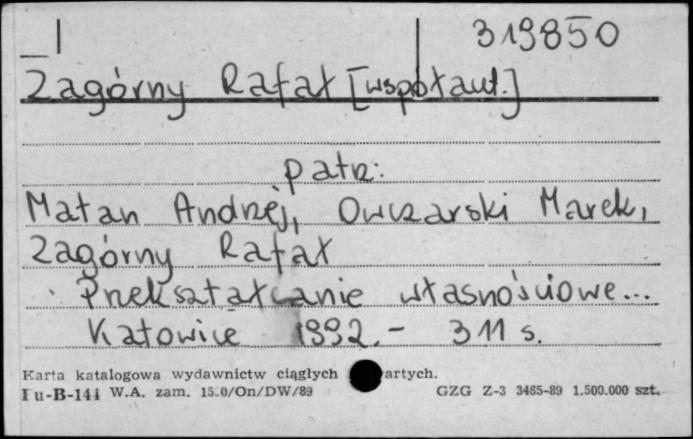 319850
Zagórny Rafał [współaut.]
patrz:
Matan Andrzej, Owczarski Marek,
Zagórny Rafał
Przekształcanie własnościowe...
Katowice 1992.- 311 s.
Karta katalogowa wydawnictw ciągłych
Iu-B-141 W.A. zam. /On/DW/89 GZG Z-3 3465-89 1.500.000 szt.